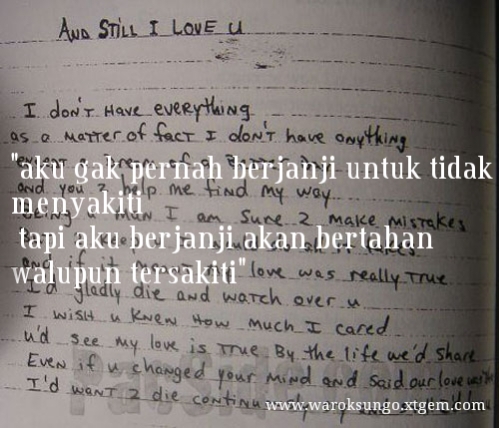 AND STILL I LOVE U
I DON'T HAVE EVERYTHING
as a matter of fact I DON'T HAVE anything
"aku gak pernah berjanji untuk tidak
and you 2 help me find my way
menyakiti
I am sure 2 make mistakes
tapi aku berjanji akan bertahan
and if it love was really true
walupun tersakiti"
I'd gladly die and watch over u
I wish u knew how much I cared
u'd see my love is true by the life we'd share
Even if u changed your mind and said our love was
I'd want 2 die
www.waroksungo.xtgem.com